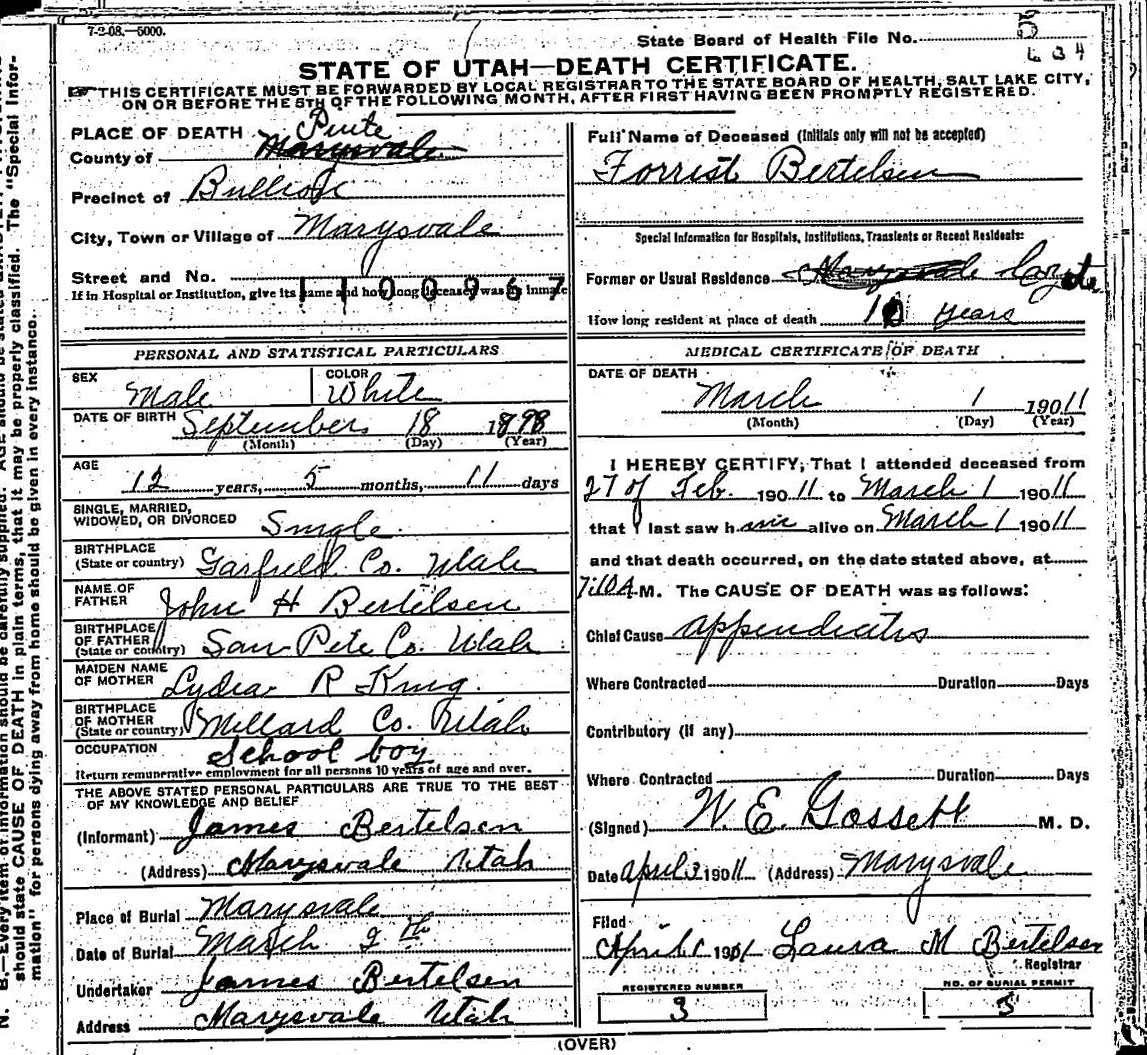 7-2-08.—5000.
State Board of Health File No. 5
634
STATE OF UTAH—DEATH CERTIFICATE.
THIS CERTIFICATE MUST BE FORWARDED BY LOCAL REGISTRAR TO THE STATE BOARD OF HEALTH, SALT LAKE CITY,
ON OR BEFORE THE 5TH OF THE FOLLOWING MONTH, AFTER FIRST HAVING BEEN PROMPTLY REGISTERED.
PLACE OF DEATH Piute
County of Marysvale
Precinct of
City, Town or Village of Marysvale
Street and No.
1100967
If in Hospital or Institution, give its name and how long deceased was an inmate
Full Name of Deceased (Initials only will not be accepted)
Forrist Bertelsen
Special Information for Hospitals, Institutions, Transients or Recent Residents:
Former or Usual Residence Marysvale
How long resident at place of death 10 years
PERSONAL AND STATISTICAL PARTICULARS
SEX Male COLOR White
DATE OF BIRTH September 18 1898
(Month) (Day) (Year)
AGE
12 years, 5 months, 11 days
SINGLE, MARRIED,
WIDOWED, OR DIVORCED Single
BIRTHPLACE
(State or country) Garfield Co. Utah
NAME OF
FATHER John H Bertelsen
BIRTHPLACE
OF FATHER
(State or country) San Pete Co. Utah
MAIDEN NAME
OF MOTHER Lydia R King
BIRTHPLACE
OF MOTHER
(State or country) Millard Co. Utah
OCCUPATION School boy
Return remunerative employment for all persons 10 years of age and over.
THE ABOVE STATED PERSONAL PARTICULARS ARE TRUE TO THE BEST
OF MY KNOWLEDGE AND BELIEF
(Informant) James Bertelsen
(Address) Marysvale Utah
Place of Burial Marysvale
Date of Burial March 2th
Undertaker James Bertelsen
Address Marysvale Utah
MEDICAL CERTIFICATE OF DEATH
DATE OF DEATH
March 1 19011
(Month) (Day) (Year)
I HEREBY CERTIFY, That I attended deceased from
27 of Feb. 190 11 to March 1 190 11
that I last saw him alive on March 1 190 11
and that death occurred, on the date stated above, at
7:10 A M. The CAUSE OF DEATH was as follows:
Chief Cause appendicitis
Where Contracted Duration Days
Contributory (If any)
Where Contracted Duration Days
(Signed) W. E. Gossett M. D.
Date April 3 190 11 (Address) Marysvale
Filed
April 1 1901 Laura M Bertelsen
Registrar
REGISTERED NUMBER
3
NO. OF BURIAL PERMIT
5
(OVER)
N. B.—Every item of information should be carefully supplied. AGE should be stated
should state CAUSE OF DEATH in plain terms, that it may be properly classified. The "Special Infor-
mation" for persons dying away from home should be given in every instance.